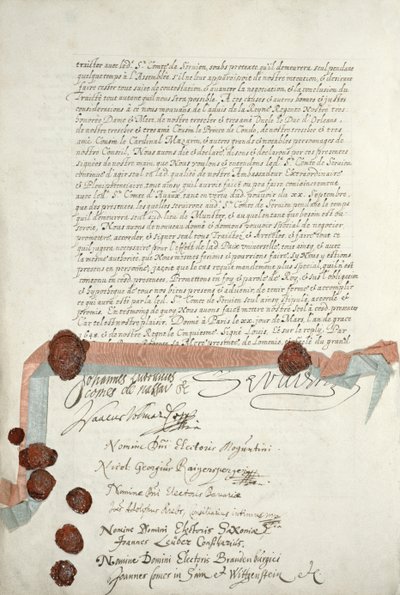 traitter avec led. Sr. Comte de Servien, soubs pretexte qu'il demeurera seul pendant
quelque temps à l'Assemblée, s'il ne luy apparoissoit de nostre intention, & desirant
faire cesser tous sujets de contestation, & avancer la negotiation, & la conclusion du
Traitté tout autant qu'il nous sera possible. A ces causes & autres bonnes & justes
considerations à ce nous mouvans, de l'advis de la Reyne Regente Nostre tres
honorée Dame & Mere, de nostre tres cher & tres amé Oncle le Duc d'Orleans,
de nostre tres cher & tres amé Cousin le Prince de Condé, de nostre tres cher & tres
amé Cousin le Cardinal Mazarin, & autres grands & notables personages de
nostre Conseil, Nous avons dit & declaré, disons & declarons par ces presentes
signées de nostre main, que Nous voulons & entendons led. Sr. Comte de Servien
continuer d'agir seul en lad. qualité de nostre Ambassadeur Extraordinaire
& Plenipotentiaire, tout ainsy qu'il auroit fait ou peu faire conjointement
avec led. Sr. Comte d'Avaux, tant en vertu dud. pouvoir du xx. Septembre,
que des presentes, de quelles servirons aud. Sr. Comte de Servien pendant le temps
qu'il demeurera seul aud. lieu de Munster, & au quel entant que besoin est ou
seroit, Nous avons de nouveau donné & donnons pouvoir special de negotier,
promettre, accorder, & signer seul tous Traittez, & Articles, & faire tout ce
qu'il jugera necessaire pour l'effect de lad. Paix universelle, tout ainsy & avec
la mesme authorité, que Nous mesmes ferions & pourrions faire, sy Nous y estions
presens en personne, jaçoit que le cas requist mandement plus special, qu'il n'est
contenu en cesd. presentes. Promettons en foy & parole de Roy, & sub l'obligation
& hypotheque de tous nos biens presens & advenir de tenir ferme & accomplir
ce qui aura esté par le led. Sr. Comte de Servien seul ainsy stipulé, accordé &
promis. En tesmoing de quoy Nous avons fait mettre nostre Seel à cesd. presentes.
Car tel est nostre plaisir. Donné à Paris le xx. jour de Mars, l'an de grace
1648. & de nostre Regne le Cinquiesme. Signé Louis. Et sur le reply, Par
Mere presente, de Lomenie, & scellé du grand
Johannes
comes de Nassau
Servien
Isaacus Volmar
Nomine Dni Electoris Moguntini.
Nicol. Georgius Raigersperger
Nomine Dni Electoris Bavariæ
Joes Adolphus Krebs, consiliarius intimus
Nomine Domini Electoris Saxoniæ
Joannes Leuber Consiliarius.
Nomine Domini Electoris Brandenburgici
Joannes Comes in Sain & Wittgenstein